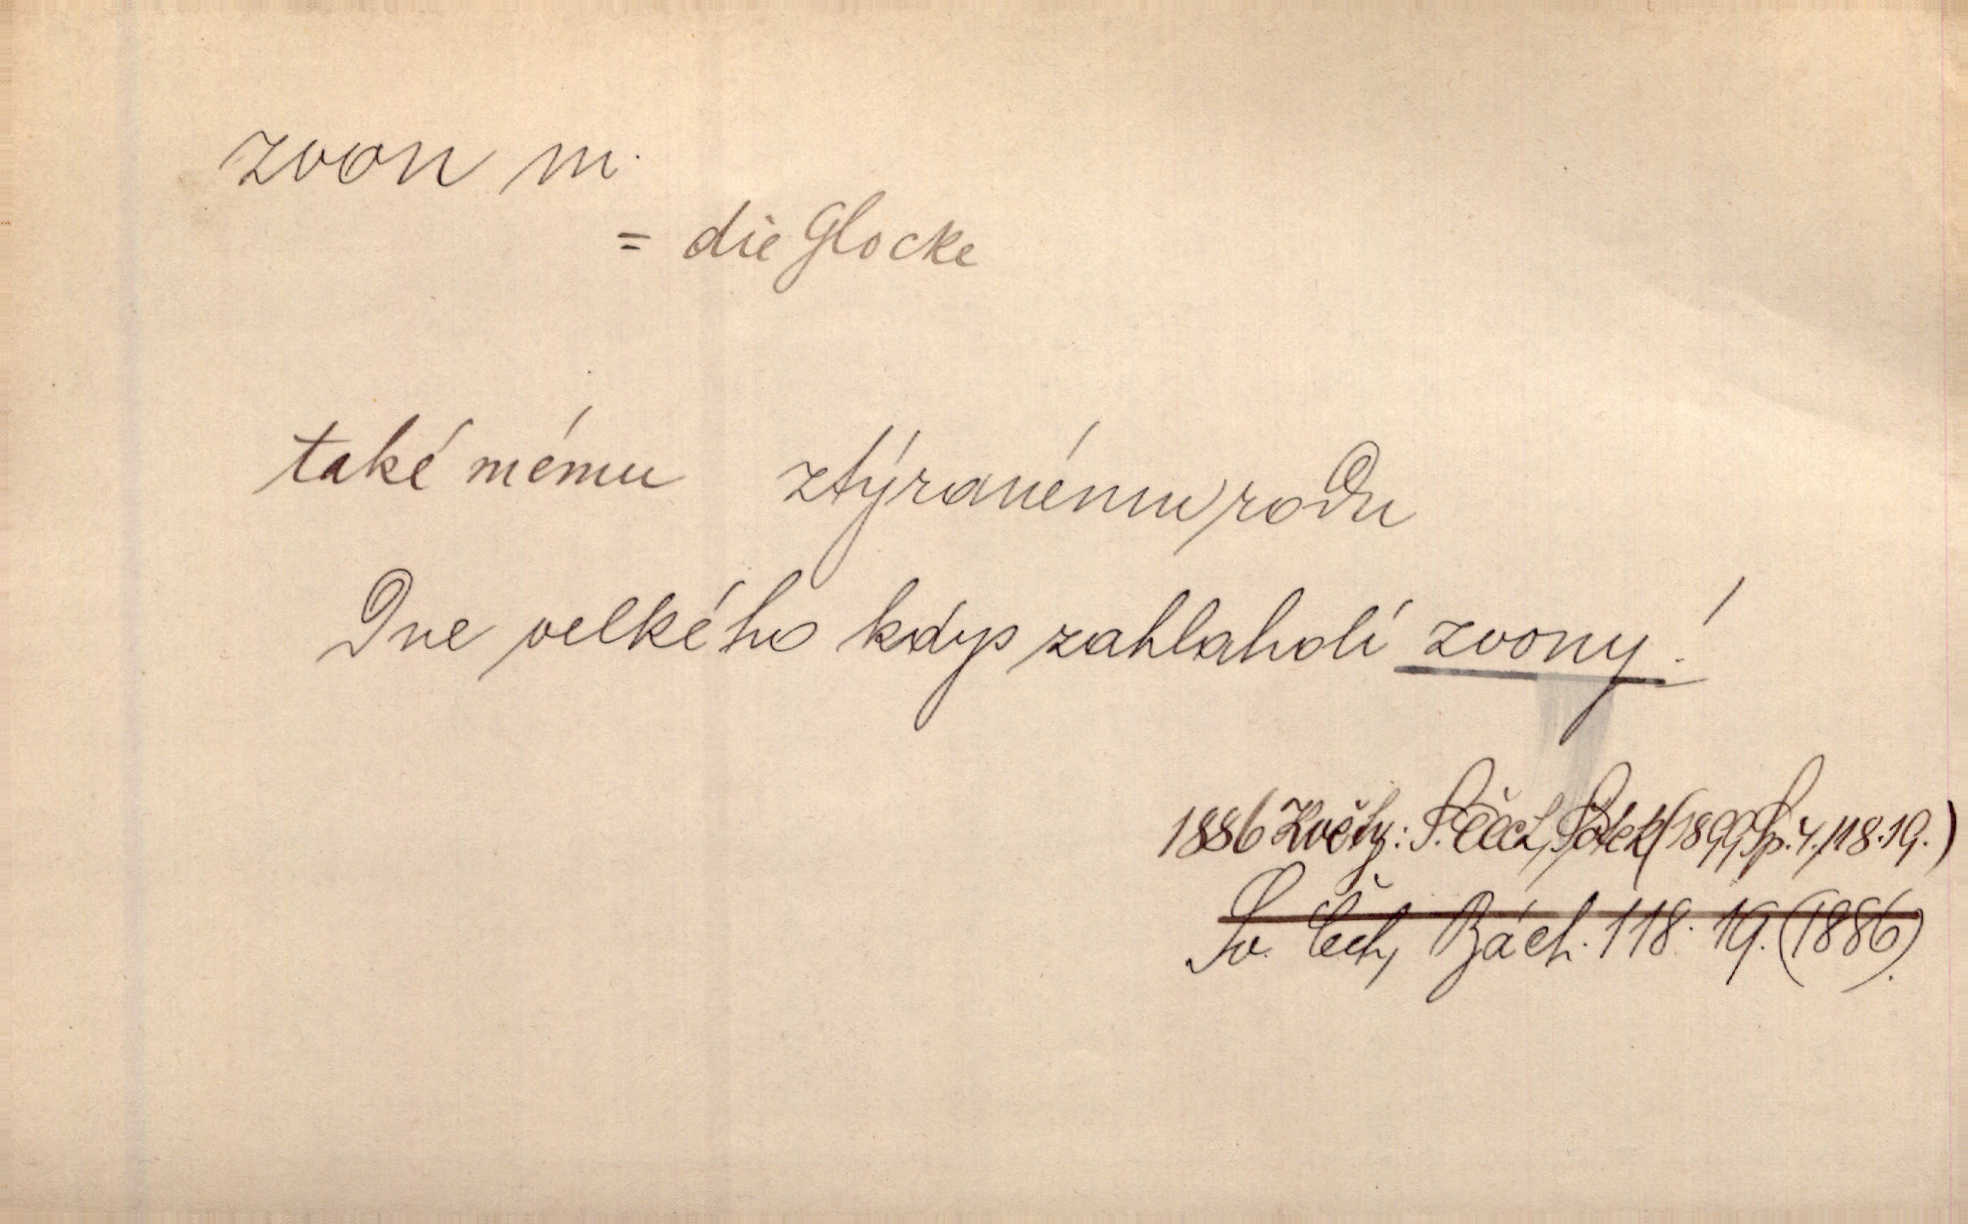 zvon m.
= die Glocke
také mému ztýranému rodu
Dne velkého kdys zahlaholí zvony!
1886 Květy: S. Čech, (1899, Sp. 4, 118.19.)
Sv. Čech, Bách. 118. 19. (1886).